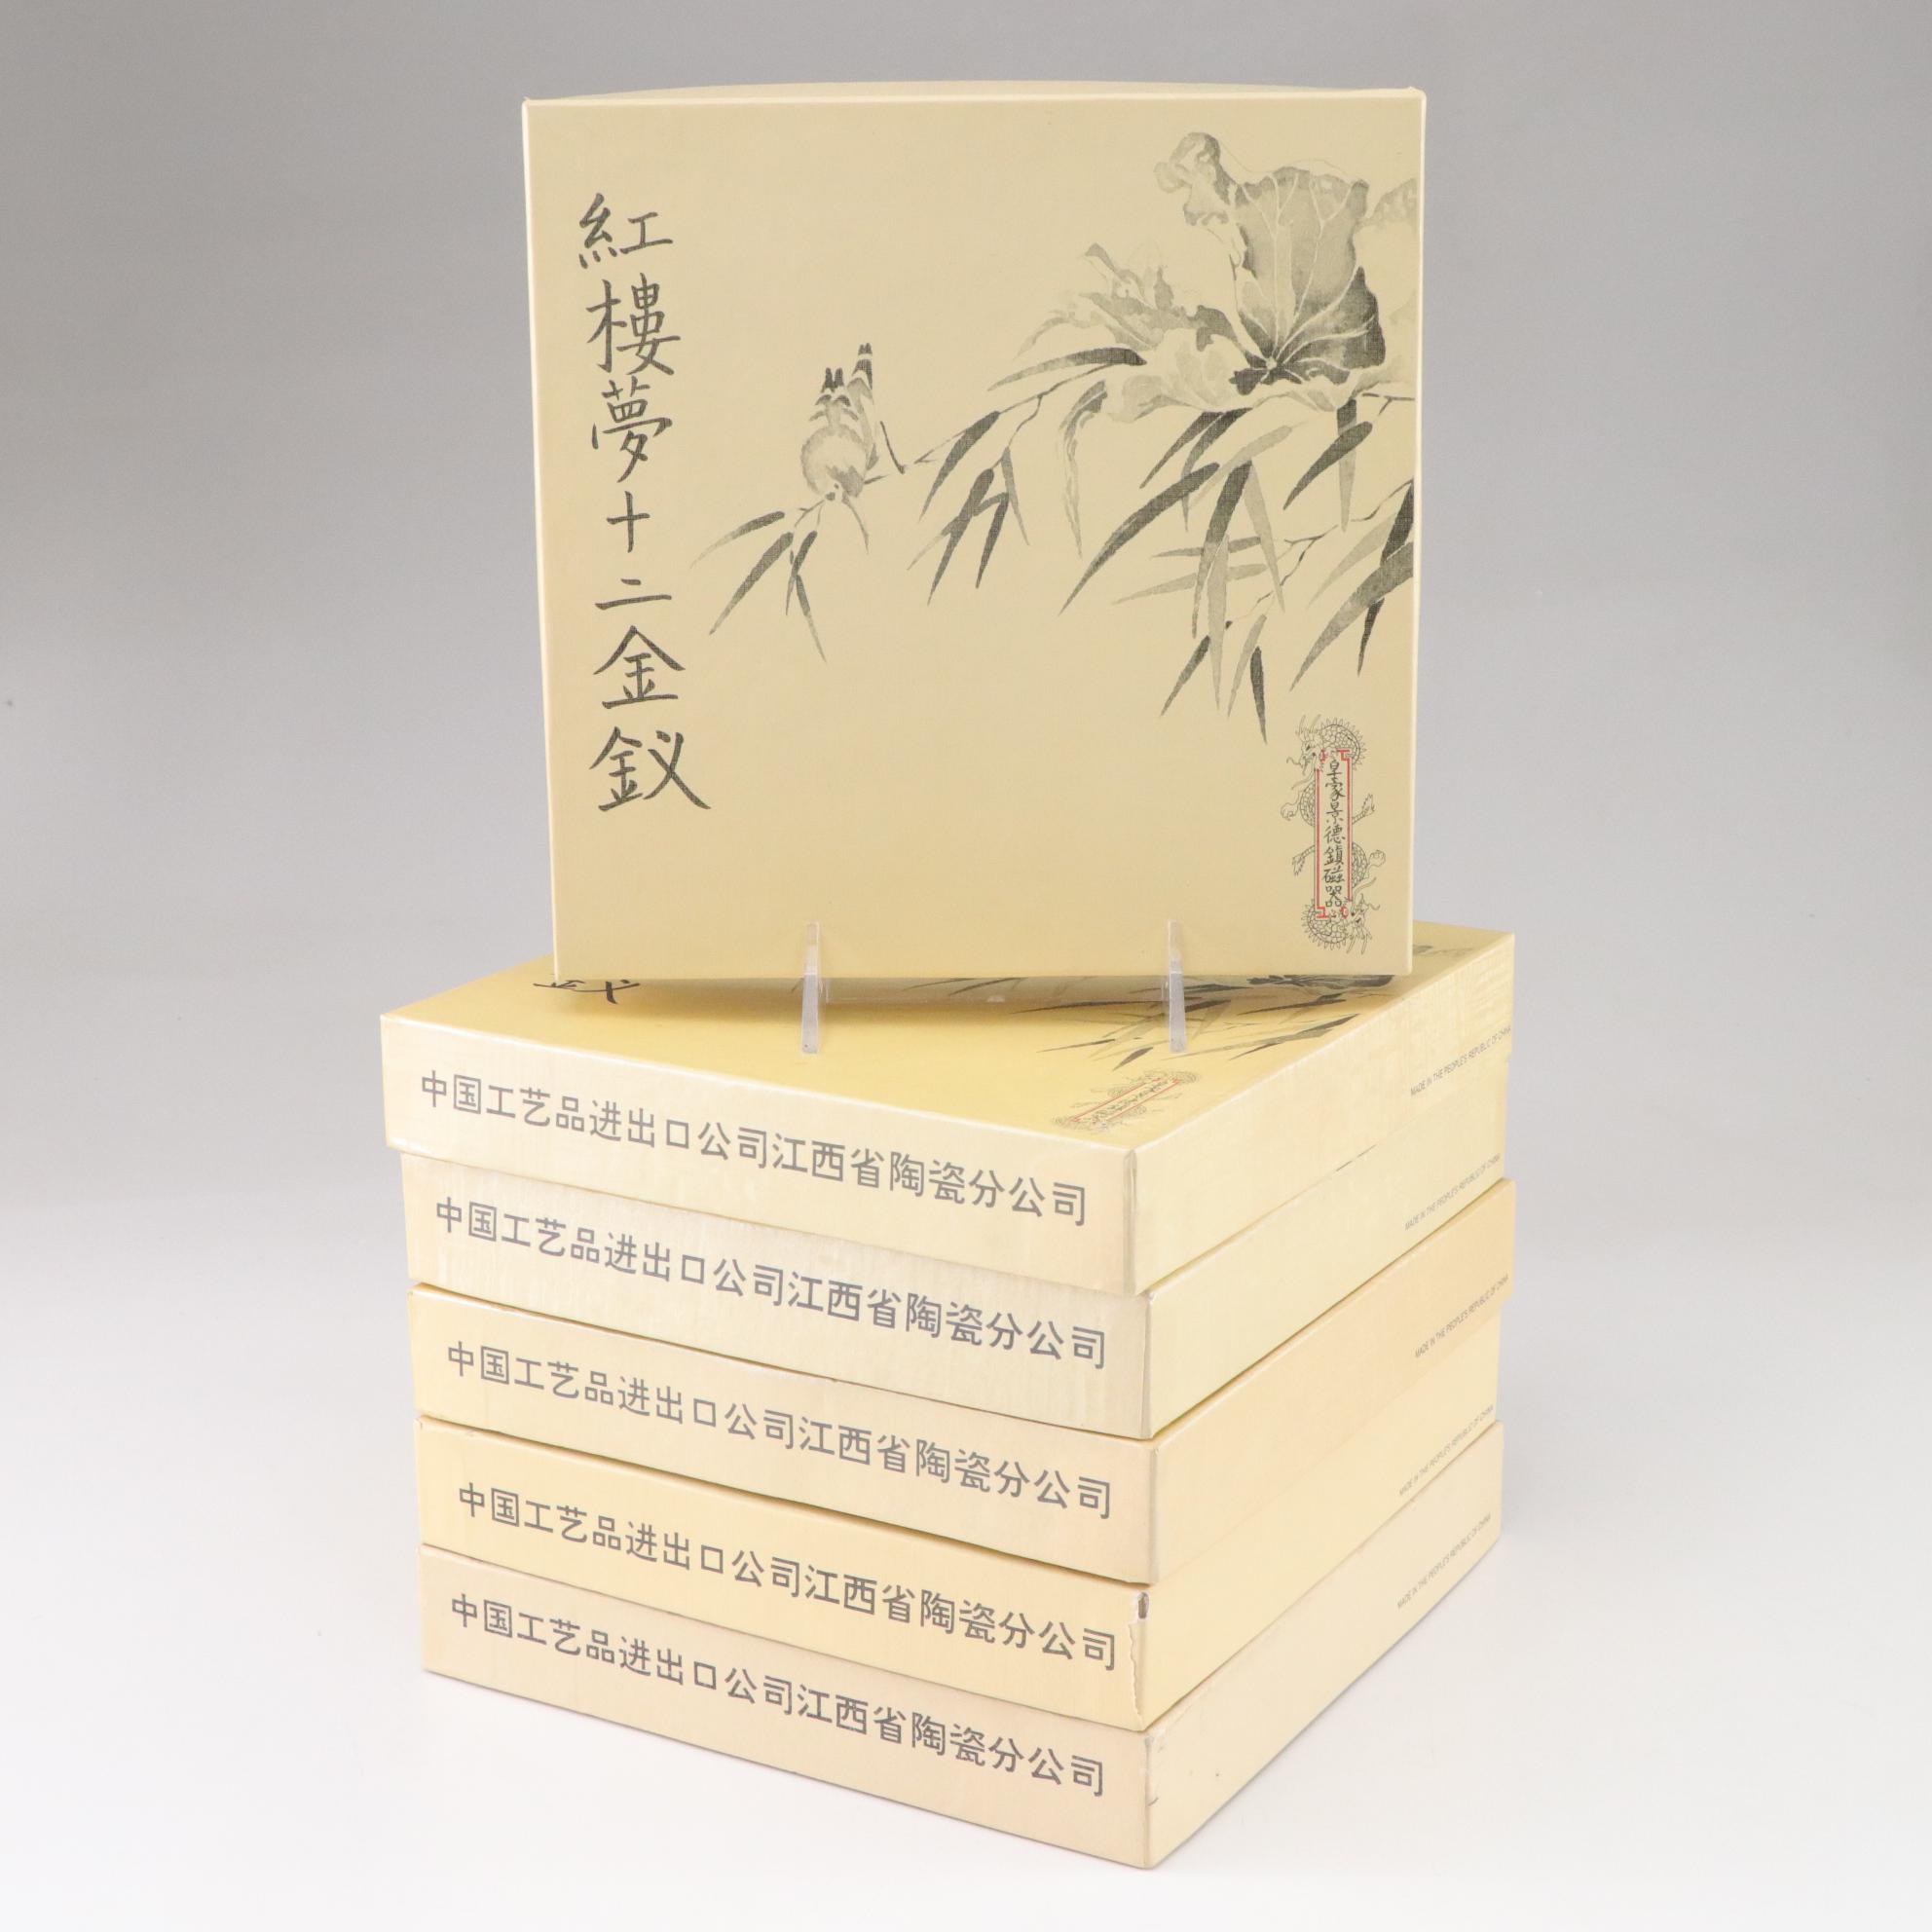 紅樓夢十二金釵
皇家景德鎮磁器
中国工艺品进出口公司江西省陶瓷分公司
MADE IN THE PEOPLE'S REPUBLIC OF CHINA
中国工艺品进出口公司江西省陶瓷分公司
MADE IN THE PEOPLE'S REPUBLIC OF CHINA
中国工艺品进出口公司江西省陶瓷分公司
MADE IN THE PEOPLE'S REPUBLIC OF CHINA
中国工艺品进出口公司江西省陶瓷分公司
MADE IN THE PEOPLE'S REPUBLIC OF CHINA
中国工艺品进出口公司江西省陶瓷分公司
MADE IN THE PEOPLE'S REPUBLIC OF CHINA